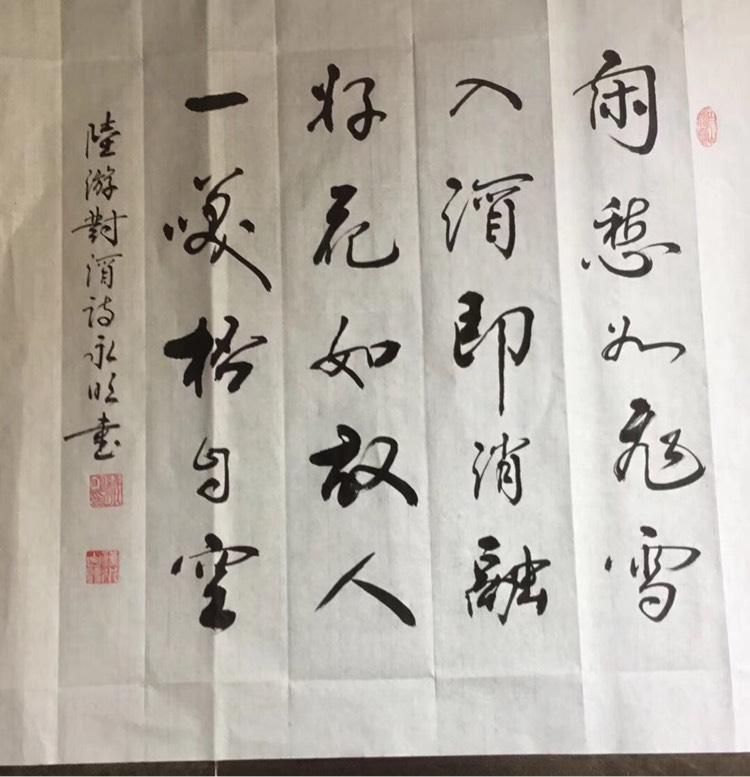 闲愁如飛雪
入酒即消融
好花如故人
一笑杯自空
陸游對酒詩永旺書